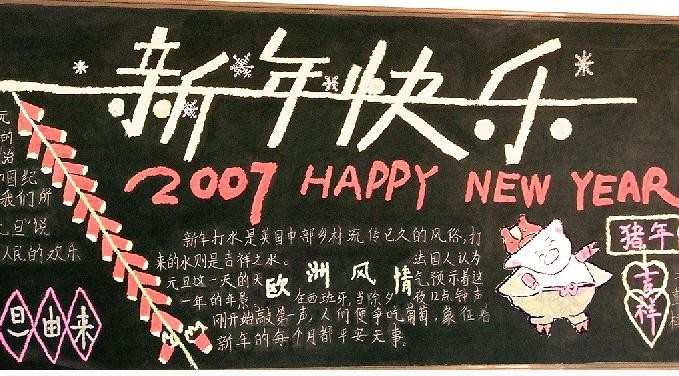 新年快乐
2007 HAPPY NEW YEAR
元
的
治
国纪
我们所
元旦"说
人民的欢乐
旦由来
新年打水是英国中部乡村流传已久的风俗,打
来的水则是吉祥之水。 法国人认为
元旦这一天的天 气预示着这
一年的年景。
欧洲风情
在西班牙,当除夕夜12点钟声
刚开始敲第一声,人们便争吃葡萄,象征着
新年的每个月都平安无事。
猪年
吉祥